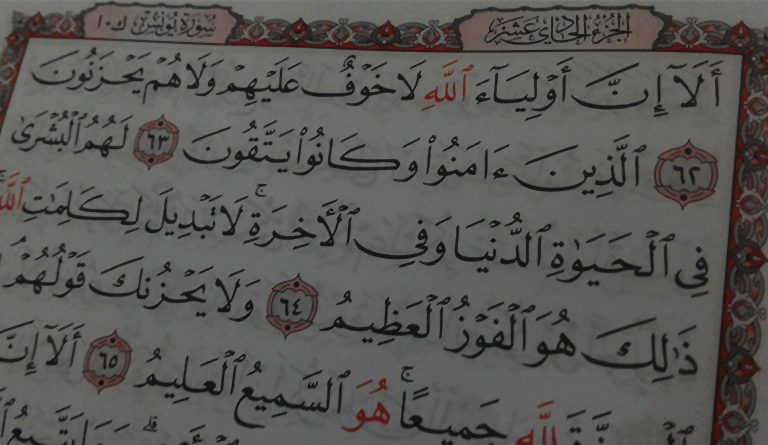 الجزء الحادي عشر
سورة يونس ك ١٠
أَلَآ إِنَّ أَوْلِيَآءَ ٱللَّهِ لَا خَوْفٌ عَلَيْهِمْ وَلَا هُمْ يَحْزَنُونَ
٦٢ ٱلَّذِينَ ءَامَنُوا۟ وَكَانُوا۟ يَتَّقُونَ ٦٣ لَهُمُ ٱلْبُشْرَىٰ
فِى ٱلْحَيَوٰةِ ٱلدُّنْيَا وَفِى ٱلْأَخِرَةِ ۚ لَا تَبْدِيلَ لِكَلِمَٰتِ ٱللَّهِ ۚ
ذَٰلِكَ هُوَ ٱلْفَوْزُ ٱلْعَظِيمُ ٦٤ وَلَا يَحْزُنكَ قَوْلُهُمْ ۘ
لِلَّهِ جَمِيعًا ۚ هُوَ ٱلسَّمِيعُ ٱلْعَلِيمُ ٦٥ أَلَآ إِنَّ